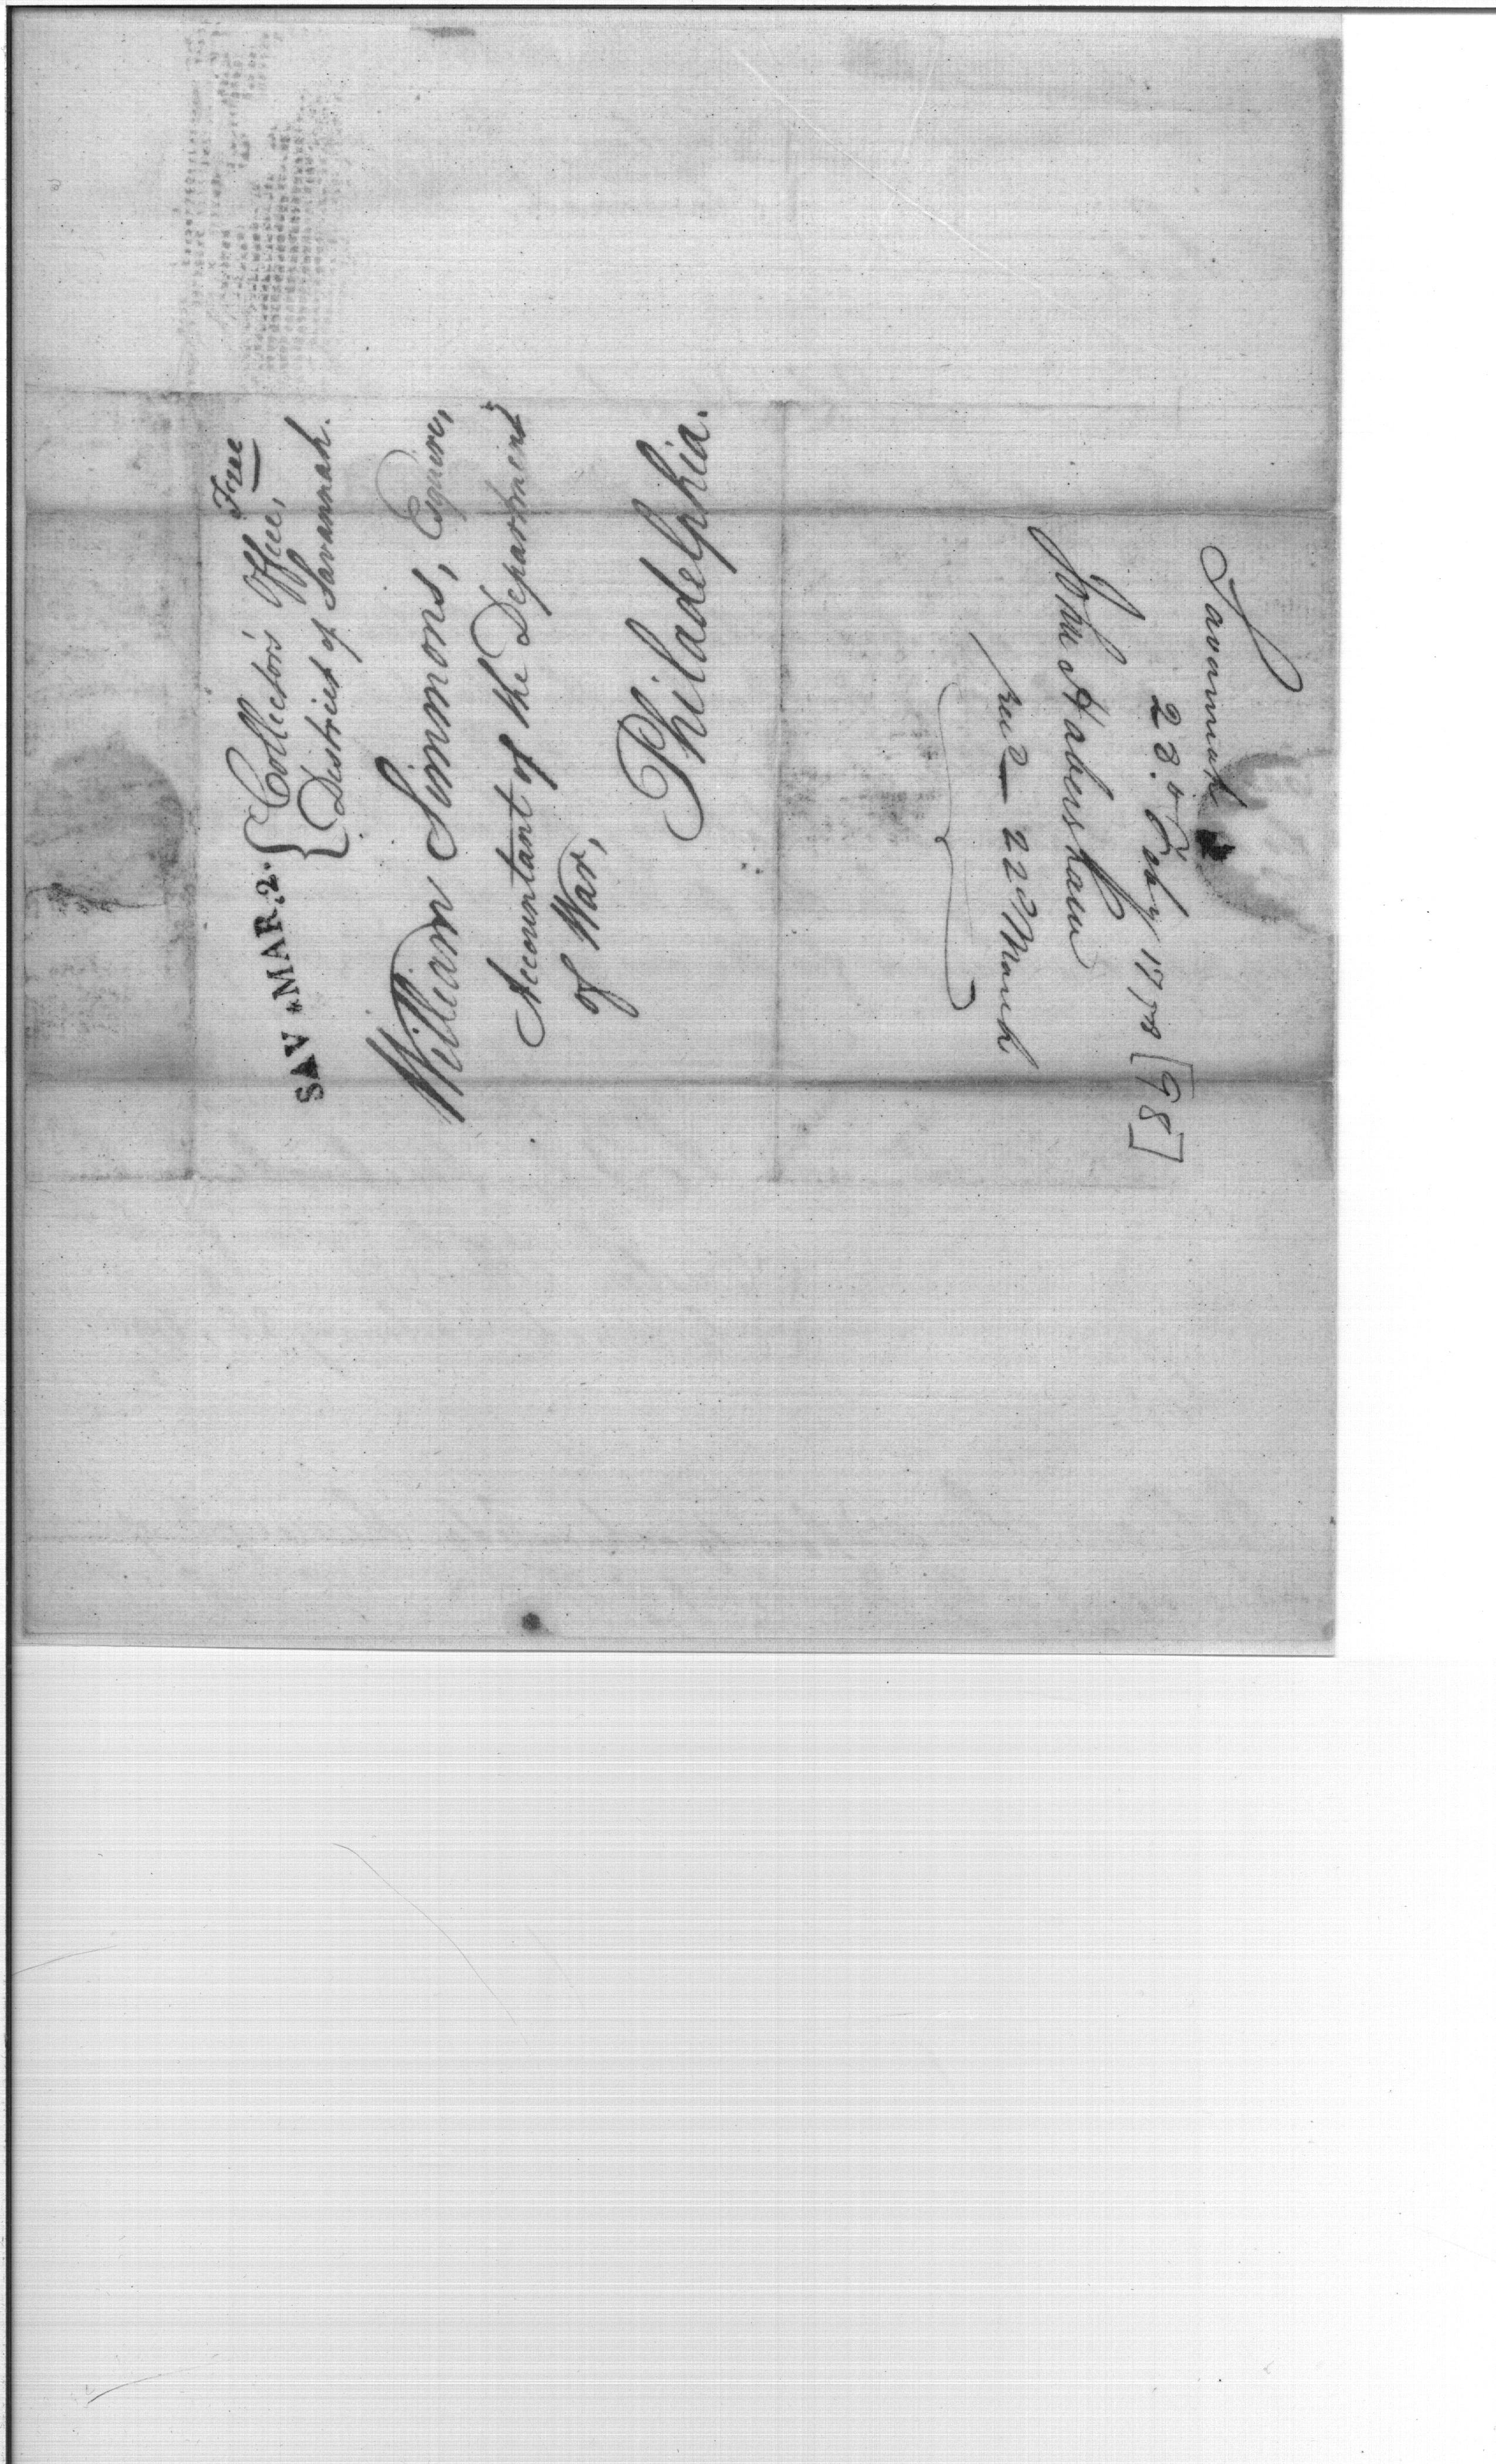 Free
Collector's Office,
District of Savannah.
SAV * MAR. 2.
William Simmons, Esquire,
Accountant of the Department
of War,
Philadelphia.
Savannah
28.th Feby 1778 [98]
John Habersham
recd 22d March